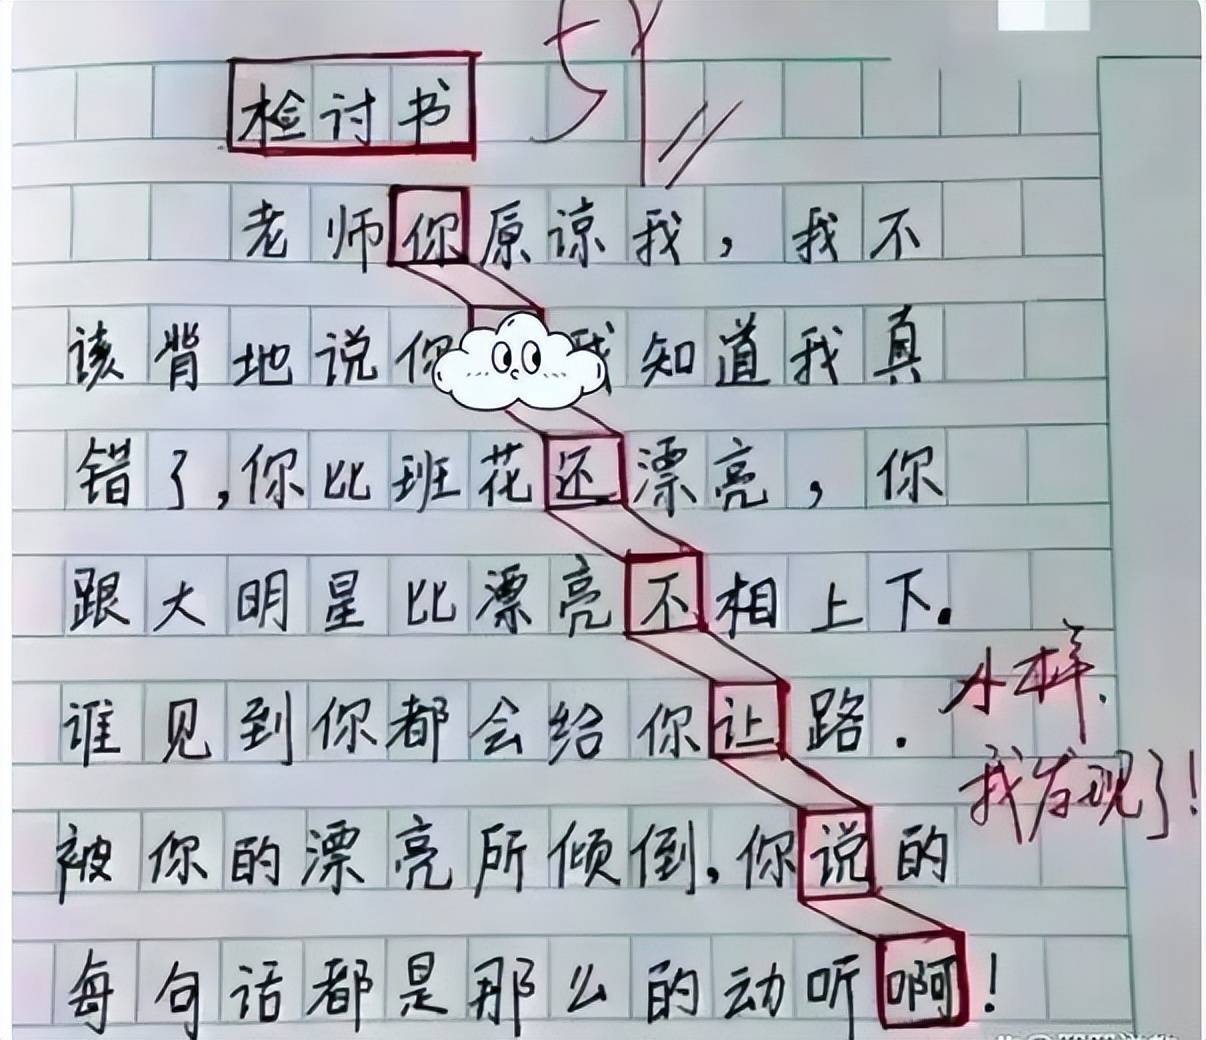 检讨书
老师你原谅我，我不
该背地说你我知道我真
错了，你比班花还漂亮，你
跟大明星比漂亮不相上下.
谁见到你都会给你让路.
小样.
我发现了!
被你的漂亮所倾倒,你说的
每句话都是那么的动听啊!